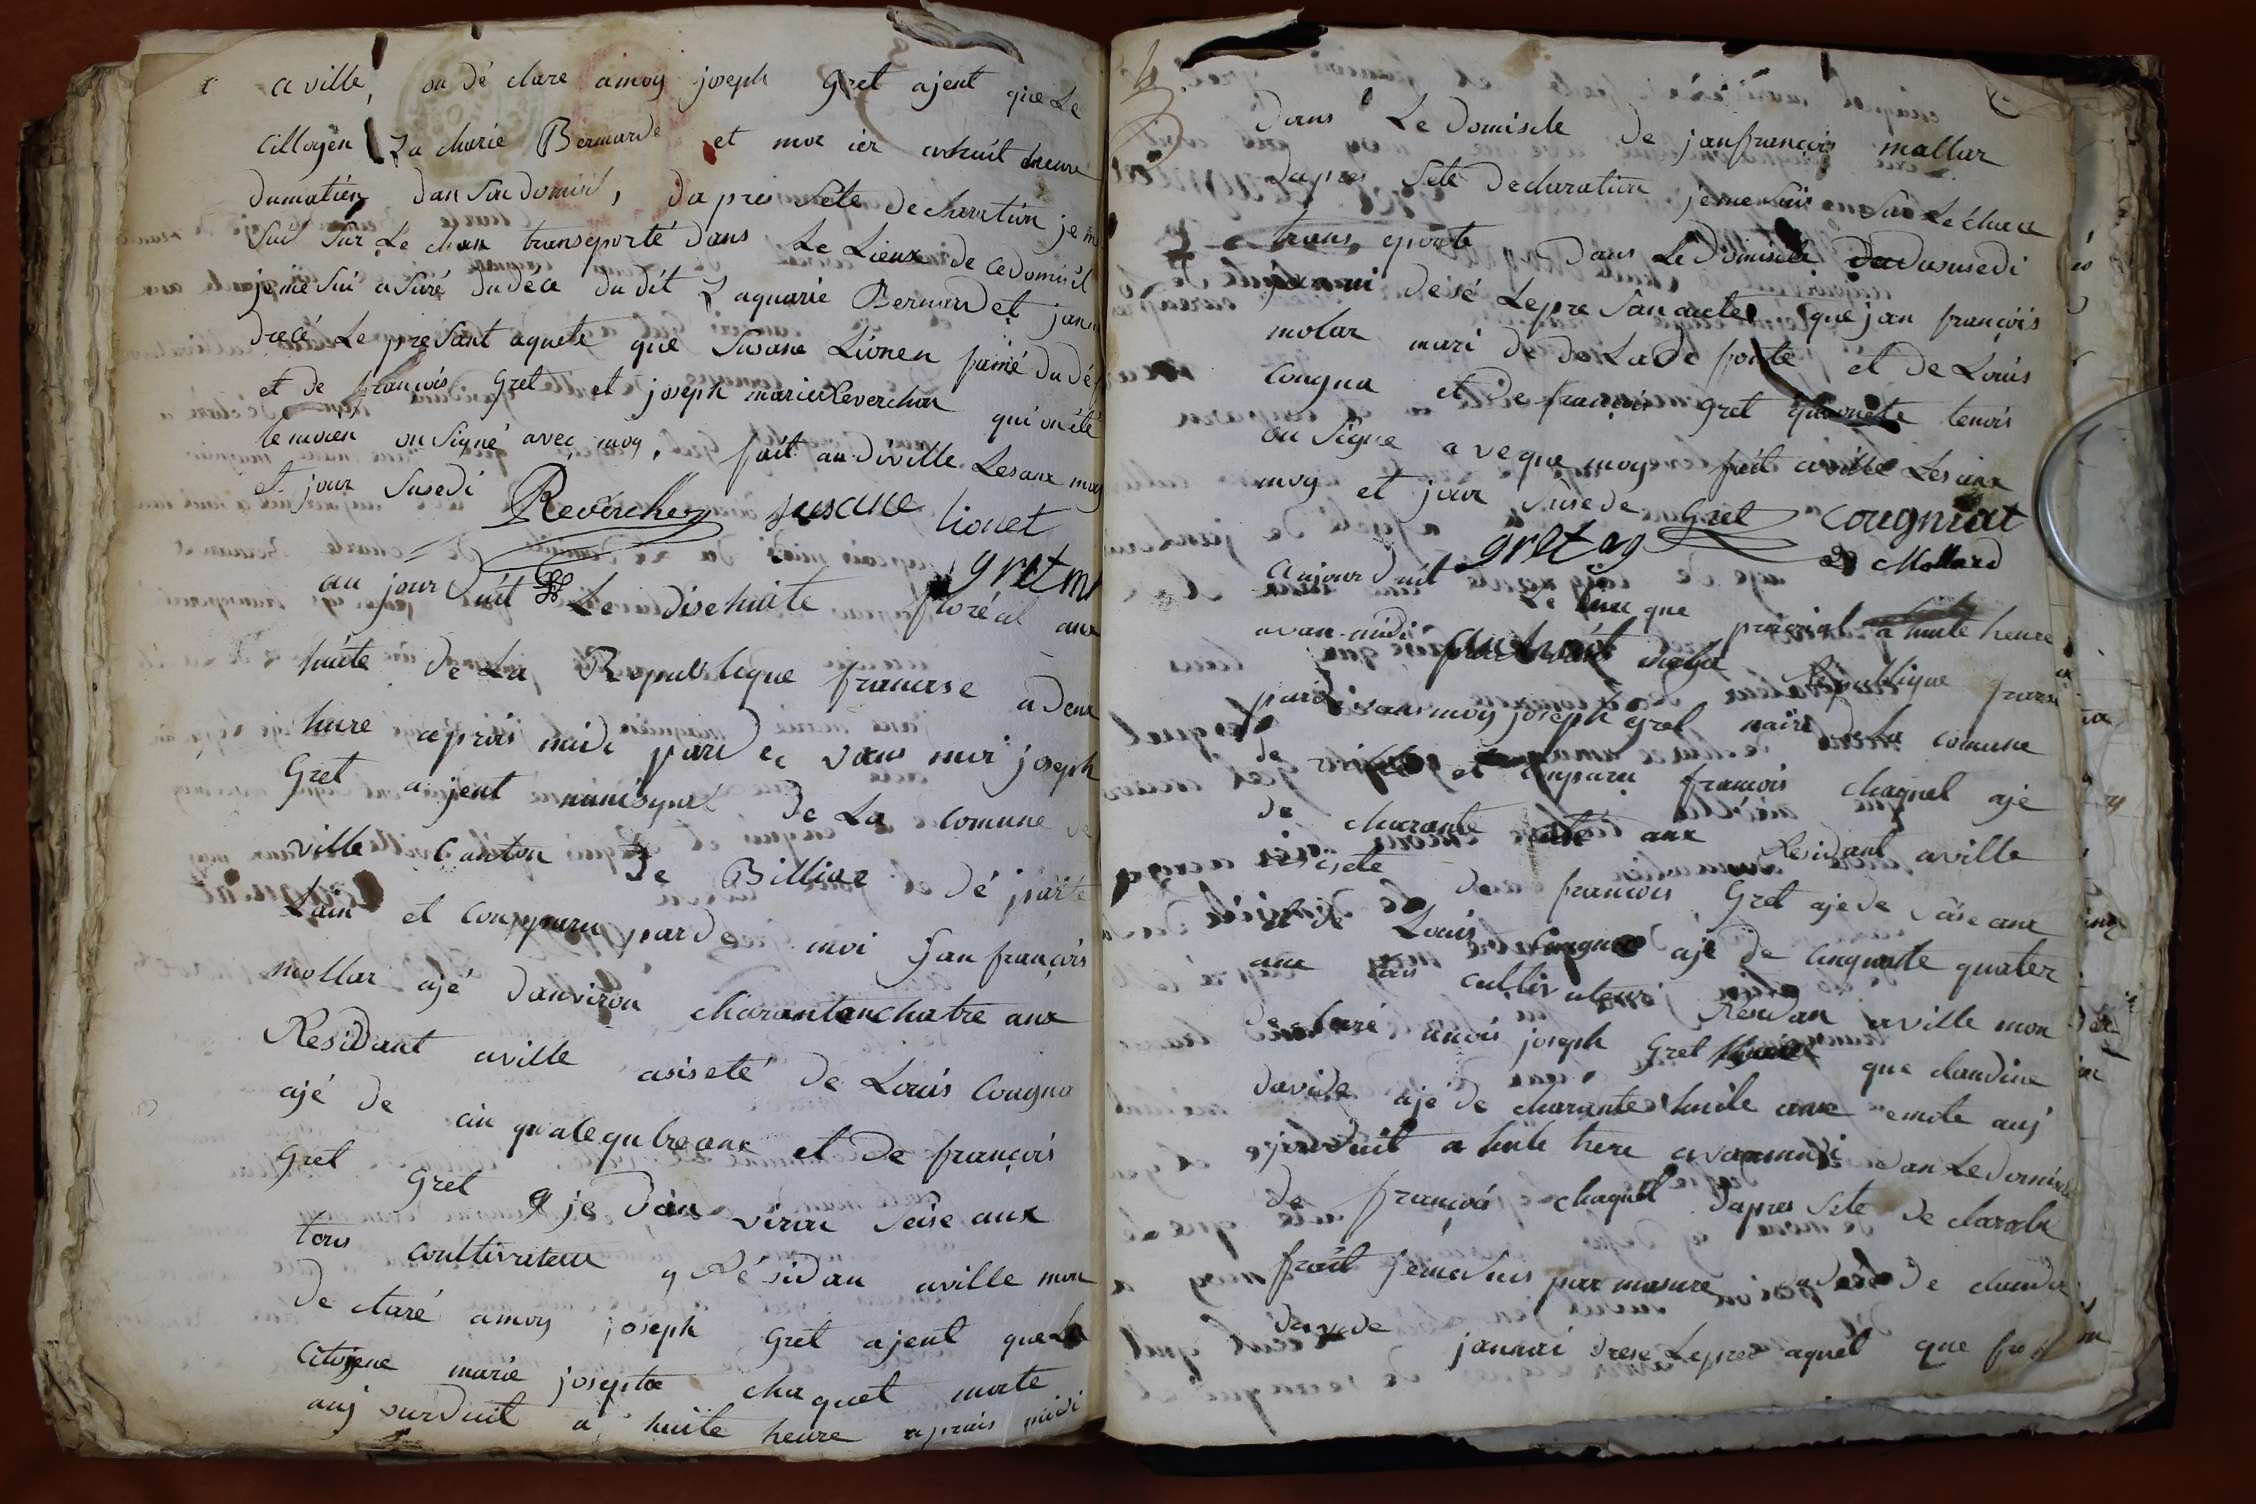 a ville, on dé clare a moy joseph gret ajent que Le
Cittoyen Za charie Bernarde et mor ier a huit heure
dumatien dan Son domisil, da pres Sete declaration je m
Sui Sur Le chan transporté dans Le Lieux de ce domisil
je me Sui a Suré du déce du dit Zaquarie Bernard et jann
drecé Le presant aquete que Susane Lionen fame du dé
et de françois gret et joseph marie Reverchon qui on été
temoien on Signé avec moy, fait au diville Les aux moy
et jour Susedi Reverchon susane lionet
gret m
au jour Duit Le dise huite floréal aux
huite de La Republique francese a deux
heure aprais midi pard e vans moi joseph
Gret ajent munisypal de La Comune de
ville Canton De Billiae dé parte
Lain et Comparu parde moi jan françois
mollar ajé danviron charantenchatre anx
Residant aville asiseté de Louis Cougna
ajé de cin quate qu tre anx et de françois
gret gret aje dan viron Seise aux
tous coultivateur y Résidan aville mon
De claré amoy joseph Gret ajent que La
Citojene marie josepte cha quet morte
auj ourduit a huite heure aprais midi
Dans Le Domisile de jan françois mallar
dapres Sete Declaration je me Sui Sur Le chan
trans porte dans Le Domisile du Susedi
jan nai dresé Lepre San aucte que jan françois
molar mari de de La de fonte et de Louis
Cougna et de françois gret qui on été tenois
on Signe aveque moy fait aville Les aux
moy et jour Susede Gret cougniat
gret ag Mollard
Aujour duit Le cinque prairial a huite heure
avan midi an huit de La Republique franse
par de vans moy joseph gret maire de La comune
de et Comparu francois chaquel aje
de charante ans Residant aville
a sisete de francois Gret aje de Saise anx
et de Louis Cougna ajé de Cinquate quater
anx tous cultivateur Residan aville mon
declaré a moi joseph gret maire que claudine
davide ajé de charante huite anx emorte auj
ourduit a huite heure avan midi dan Le domisile
de françois chaquel dapres Sete declaration
fait je me Suis par masure du dece de claudine
davide jannai drese Lepres aquet que fr